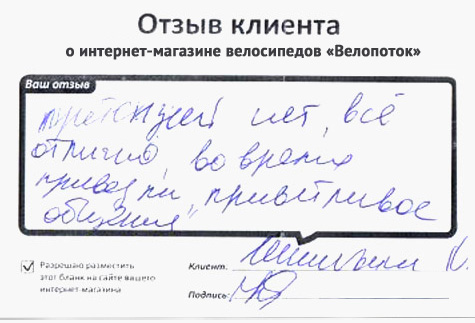 Отзыв клиента
о интернет-магазине велосипедов «Велопоток»
Ваш отзыв
претензией нет, всё
отлично, во время
привезли, приветливое
общения
Разрешаю разместить
этот бланк на сайте вашего
интернет-магазина
Клиент:
Подпись: